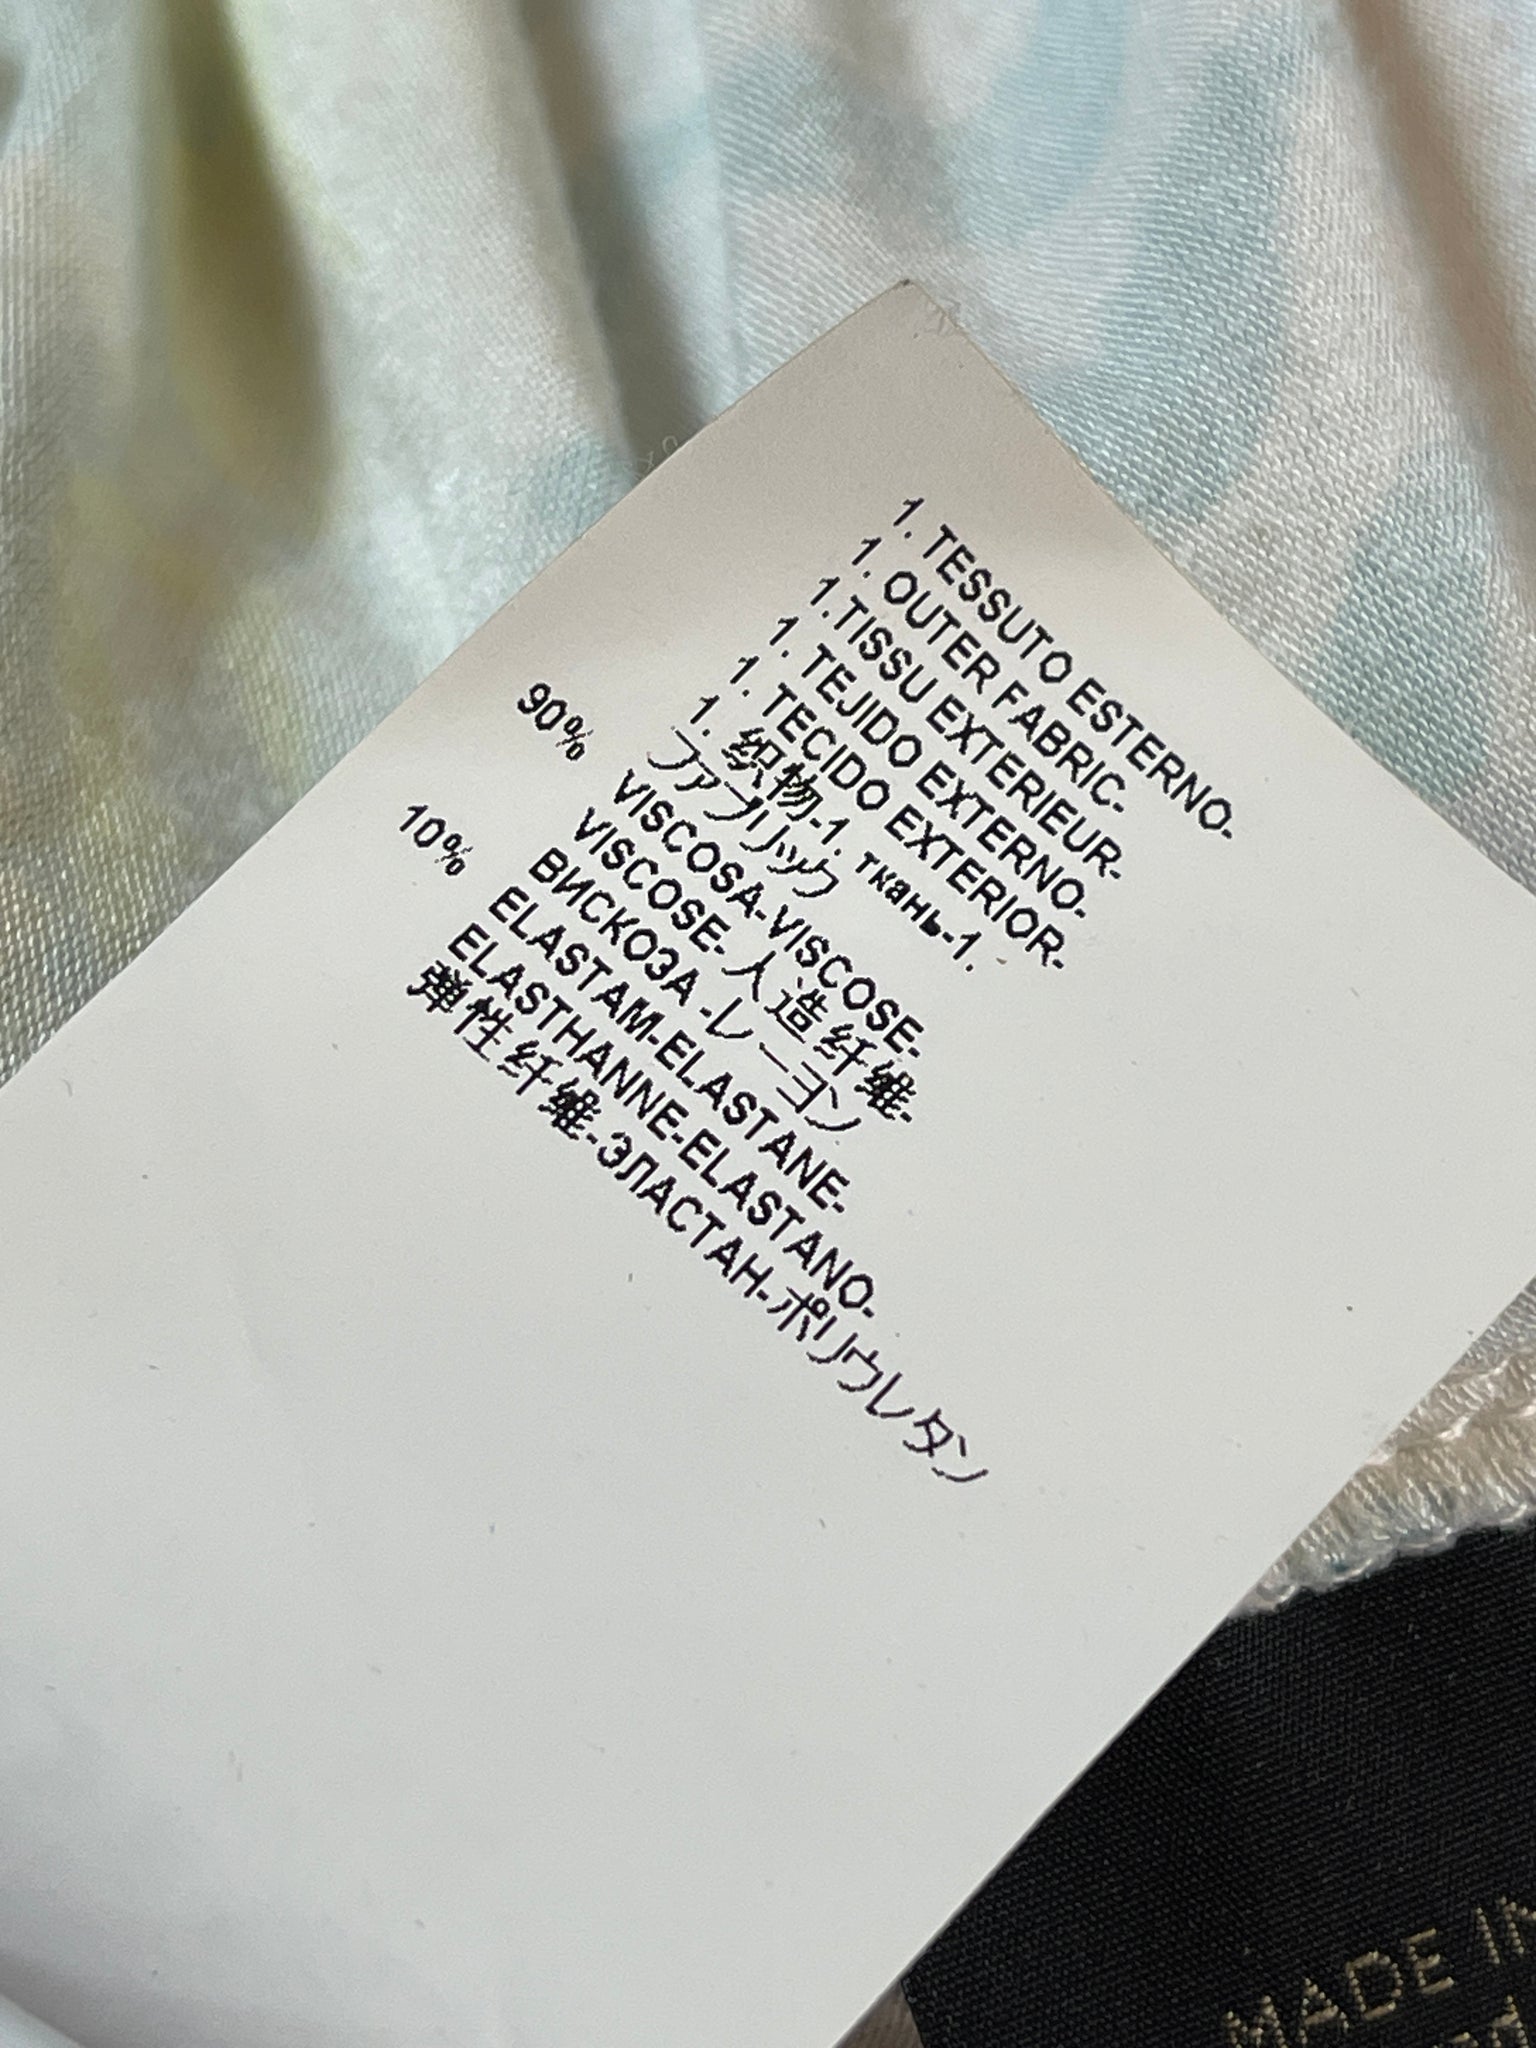 1. TESSUTO ESTERNO-
1. OUTER FABRIC-
1.TISSU EXTERIEUR-
1. TEJIDO EXTERNO-
1. TECIDO EXTERIOR-
1. 织物-1. ткань-1.
ファブリック
90% VISCOSA-VISCOSE-
VISCOSE-人造纤维-
ВИСКОЗА-レーヨン
10% ELASTAM-ELASTANE-
ELASTHANNE-ELASTANO-
弹性纤维-ЭЛАСТАН-ポリウレタン
MADE IN